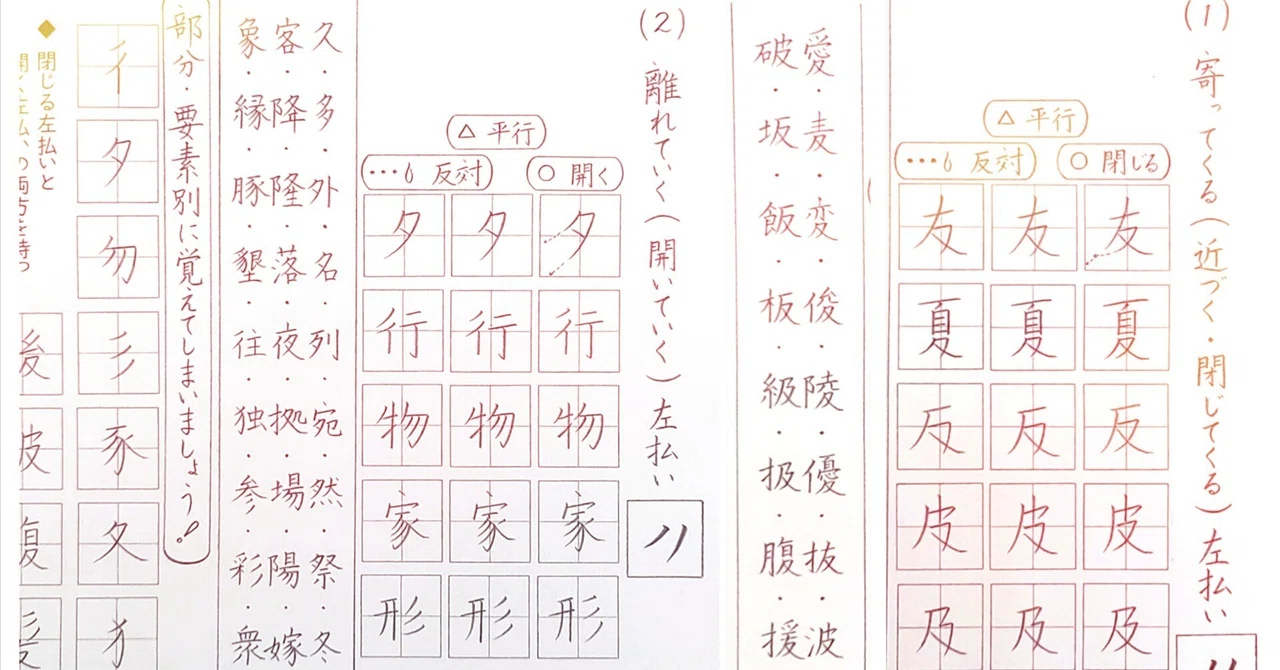 (1) 寄ってくる(近づく・閉じてくる)左払い
○ 閉じる
△ 平行
…反対
友 夏 反 皮 及
友 夏 反 皮 及
友 夏 反 皮 及
愛・麦・変・俊・陵・優・抜・波
破・坂・飯・板・級・扱・腹・援
(2) 離れていく(開いていく)左払い
○ 開く
△ 平行
…反対
夕 行 物 家 形
夕 行 物 家 形
夕 行 物 家 形
久・多・外・名・列・宛・然・祭・冬
客・降・隆・落・夜・拠・場・陽・嫁
象・縁・豚・墾・往・独・参・彩・衆
部分・要素別に覚えてしまいましょう!
彳 夕 勿 彡 豕 夂 犭
◆閉じる左払いと
開く左払いの両方を持つ